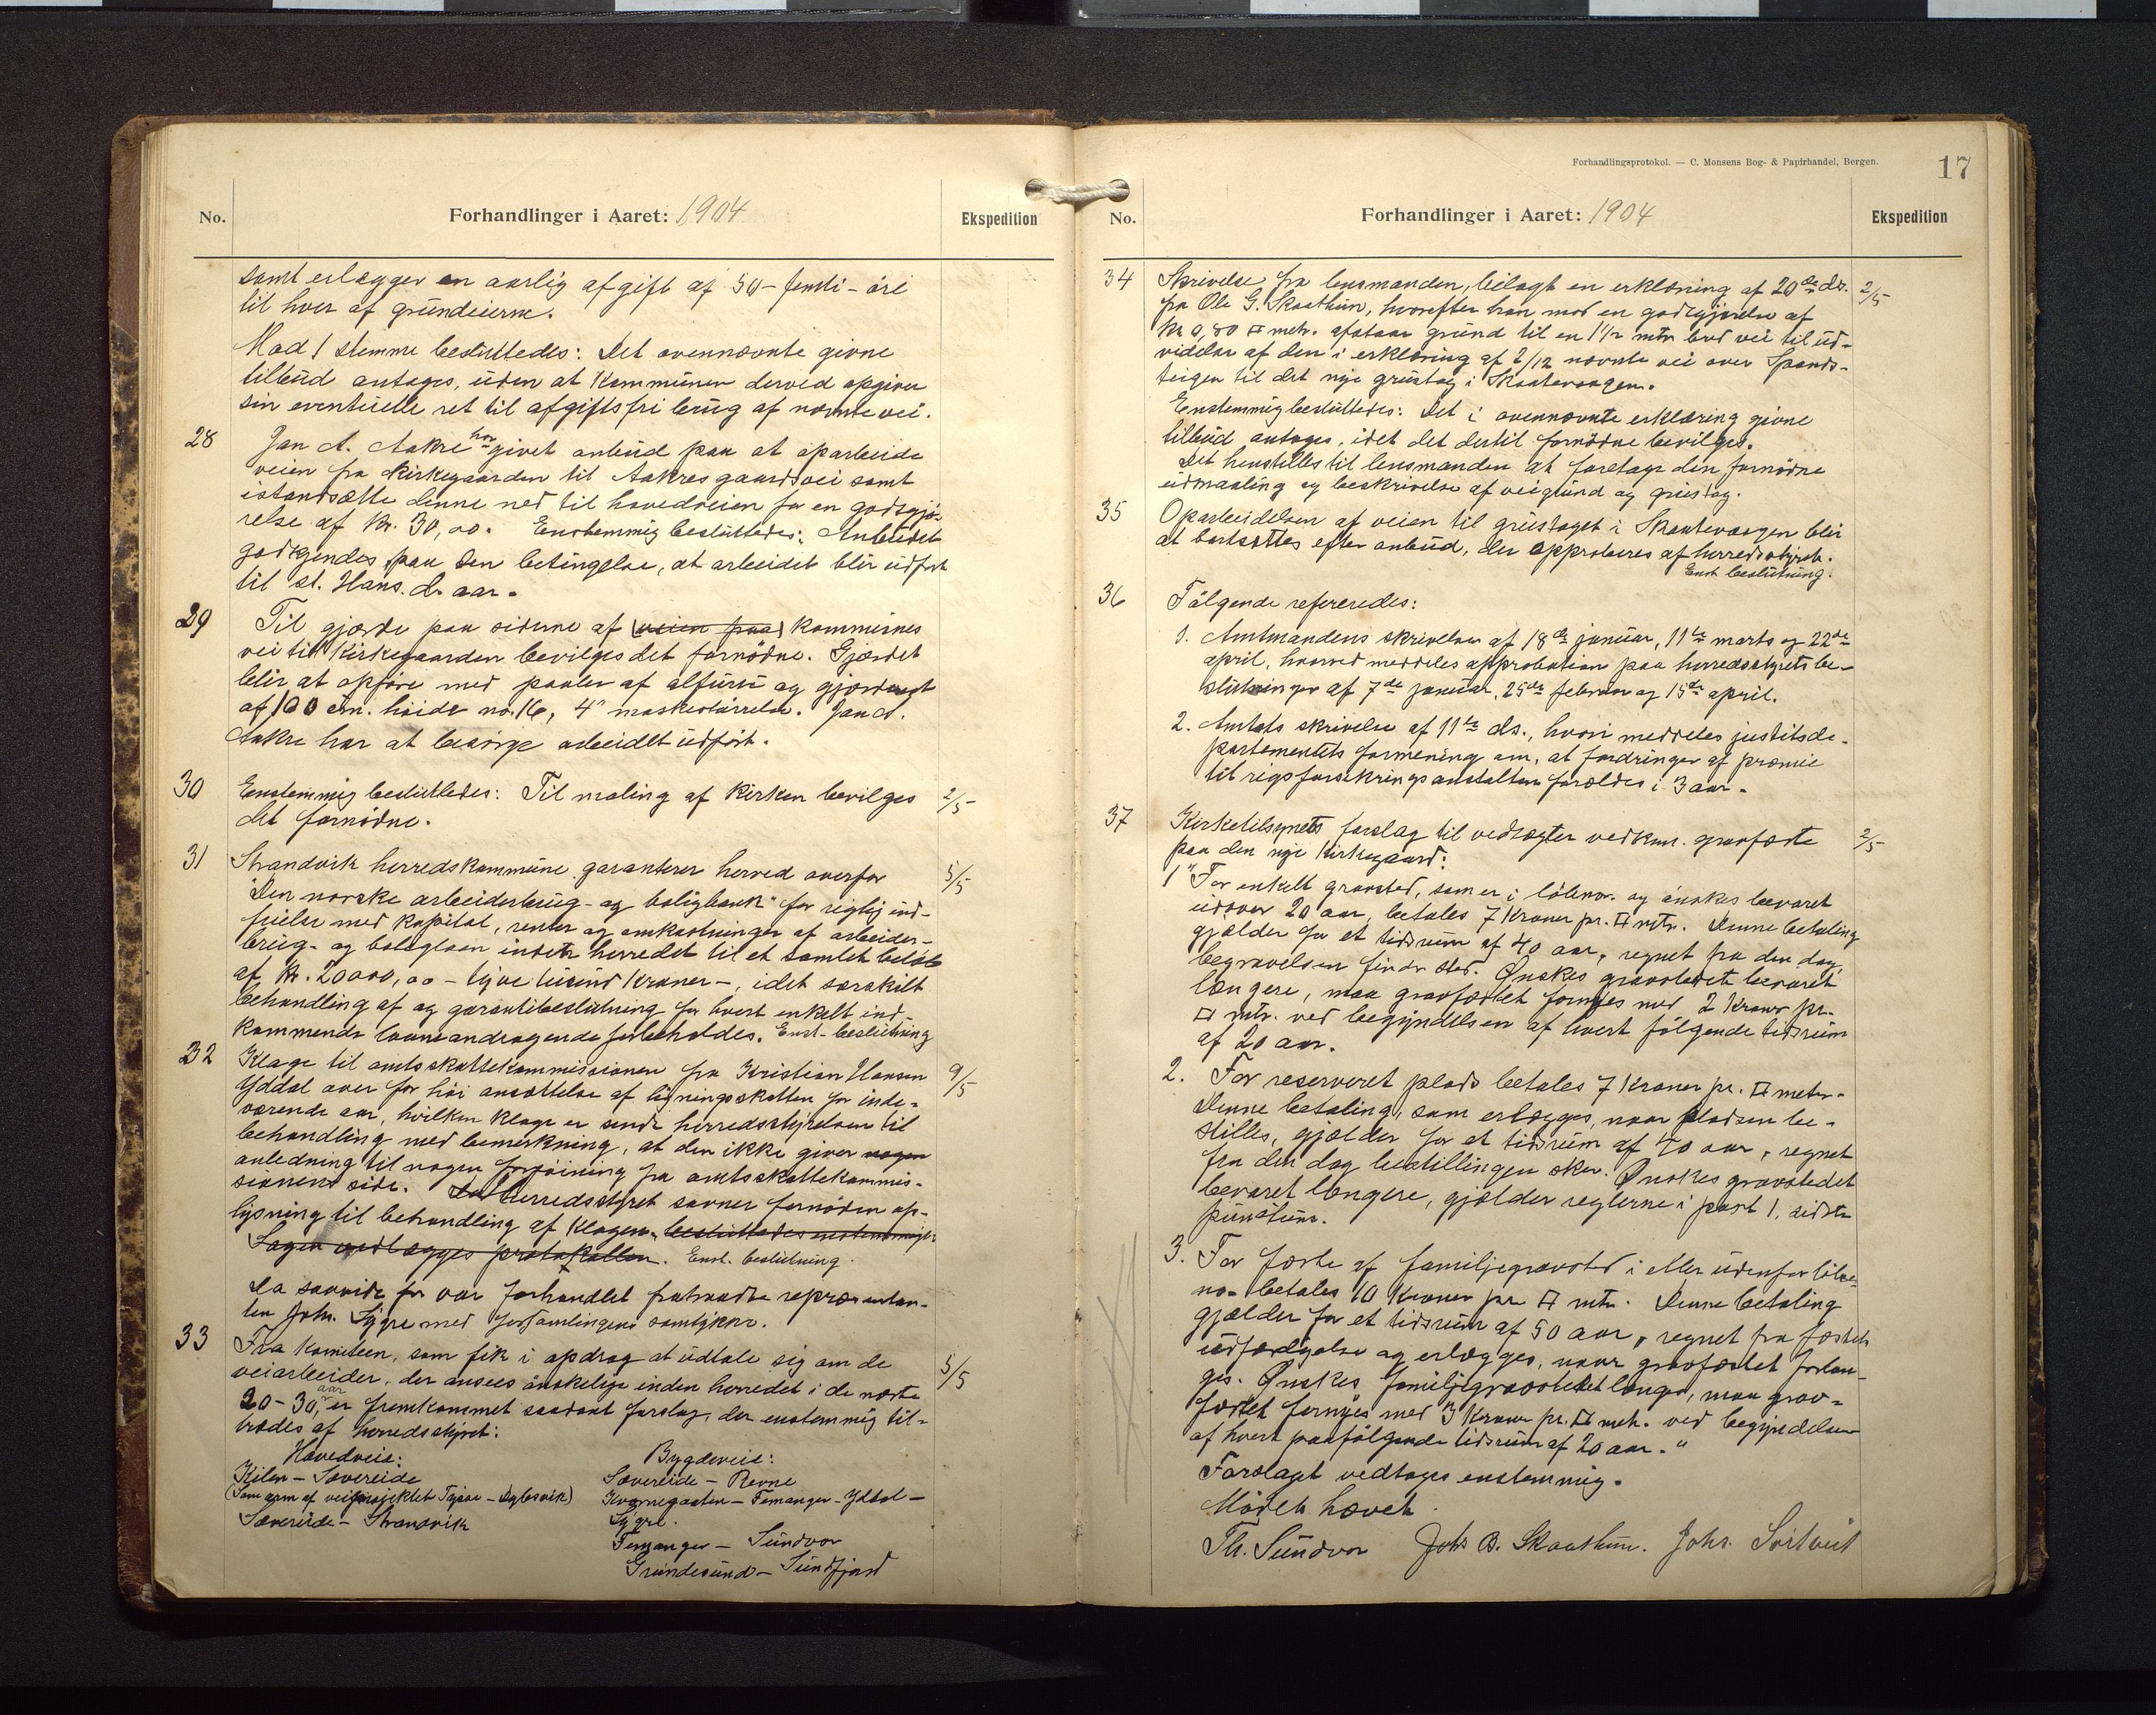 No.
Forhandlinger i Aaret: 1904
Ekspedition
samt erlægger en aarlig afgift af 50 - femti - öre
til hver af grundeierne.
Mod 1 stemme besluttedes: Det ovennævnte givne
tilbud antages, uden at kommunen derved opgiver
sin eventuelle ret til afgiftsfri brug af nævnte vei.
28 Jan A. Aakre har givet anbud paa at oparbeide
veien fra kirkegaarden til Aakres gaardsvei samt
istandsætte denne ned til hovedveien for en godtgjö-
relse af kr. 30,00. Enstemmig besluttedes: Anbudet
godkjendes paa den betingelse, at arbeidet blir udfört
til st. Hans. d. aar.
29 Til gjærde paa siderne af (veien paa) kommunes
vei til Kirkegaarden bevilges det fornödne. Gjærdet
blir at opföre med pæler af alfuru og
af 100 cm. höide no. 16, 4" maskestörrelse. Jan A.
Aakre har at besörge arbeidet udfört.
30 Enstemmig besluttedes: Til maling af kirken bevilges 2/5
det fornödne.
31 Strandvik herredskommune garanterer herved overfor 5/5
"Den norske arbeiderbrug- og boligbank" for rigtig ind-
frielse med kapital, renter og omkostninger af arbeider-
brug- og boliglaan inden herredet til et samlet belöb
af kr. 20000,00 - tyve tusind kroner -, idet særskilt
behandling af og garantibeslutning for hvert enkelt ind-
kommende laaneandragende forbeholdes. Enst. beslutning
32 Klage til amtsskattekommissionen fra Kristian Hansen 9/5
Yddal over for höi ansættelse af ligningsskatten for inde-
værende aar, hvilken klage er sendt herredsstyrelsen til
behandling med bemerkning, at den ikke giver nogen
anledning til nogen forföining fra amtsskattekommis-
sionens side. Herredsstyret savner fornöden op-
lysning til behandling af klagen. besluttedes enstemmig:
Sagen vedlægges protokollen. Enst. beslutning.
Da saavidt var forhandlet fratraadte repræsentan-
ten Johs. Lygre med forsamlingens samtykke.
33 Fra komiteen, som fik i opdrag at udtale sig om de 5/5
veiarbeider, der ansees önskelige inden herredet i de næste
20-30 aar er fremkommet saadant forslag, der enstemmig til-
trædes af herredsstyret:
Hovedveie: Bygdeveie:
Kilen - Sævereide Sævereide - Revne
(Som arm af veiprojektet Tysse - Eglesvik) Kvernegaaten - Femanger - Yddal -
Sævereide - Strandvik Lygre.
Femanger - Sundvor
Grundesund - Sundfjord
Forhandlingsprotokol. — C. Monsens Bog- & Papirhandel, Bergen.
17
No.
Forhandlinger i Aaret: 1904
Ekspedition
34 Skrivelse fra lensmanden, bilagt en erklæring af 20de ds. 2/5
fra Ole G. Skaathun, hvorefter han mod en godtgjörelse af
kr 0,80 □ metr. afstaar grund til en 1 1/2 mtr bred vei til ud-
videlse af den i erklæring af 2/12 nævnte vei over Spands-
teigen til det nye grustag i Skaatevaagen.
Enstemmig besluttedes: Det i ovennævnte erklæring givne
tilbud antages, idet det dertil fornödne bevilges.
Det henstilles til lensmanden at foretage den fornödne
udmaaling og beskrivelse af veigrund og grustag.
35 Oparbeidelsen af veien til grustaget i Skaatevaagen blir
at bortsættes efter anbud, der approberes af herredsstyret.
Enst. beslutning.
36 Fölgende refereredes:
1. Amtmandens skrivelser af 18de januar, 11te marts og 22de
april, hvorved meddeles approbation paa herredsstyrets be-
slutninger af 7de januar, 25de februar og 15de april.
2. Amtets skrivelse af 11te ds., hvori meddeles justitsde-
partementets formening om, at fordringer af præmie
til rigsforsikringsanstalten forældes i 3 aar.
37 Kirketilsynets forslag til vedtægter vedkom. gravfæste 2/5
paa den nye kirkegaard:
1 "For enkelt gravsted, som er i löbenr. og önskes bevaret
udover 20 aar, betales 7 kroner pr. □ mtr. Denne betaling
gjælder for et tidsrum af 40 aar, regnet fra den dag,
begravelsen finder sted. Önskes gravstedet bevaret
længere, maa gravfæstet fornyes med 2 kroner pr.
□ mtr. ved begyndelsen af hvert fölgende tidsrum
af 20 aar.
2. For reserveret plads betales 7 kroner pr. □ meter.
Denne betaling, som erlægges, naar pladsen be-
stilles, gjælder for et tidsrum af 40 aar, regnet
fra den dag bestillingen sker. Önskes gravstedet
bevaret længere, gjælder reglerne i post 1, sidste
punktum.
3. For fæste af familiegravsted i eller udenfor löbe-
no. betales 10 kroner pr □ mtr. Denne betaling
gjælder for et tidsrum af 50 aar, regnet fra fæstets
udfærdigelse og erlægges, naar gravfæstet forlan-
ges. Önskes familiegravstedet længer, maa grav-
fæstet fornyes med 3 kroner pr. □ metr. ved begyndelsen
af hvert paafölgende tidsrum af 20 aar."
Forslaget vedtages enstemmig.
Mödet hævet.
Th. Sundvor Johs B. Skaathun. Johs. Sörtveit